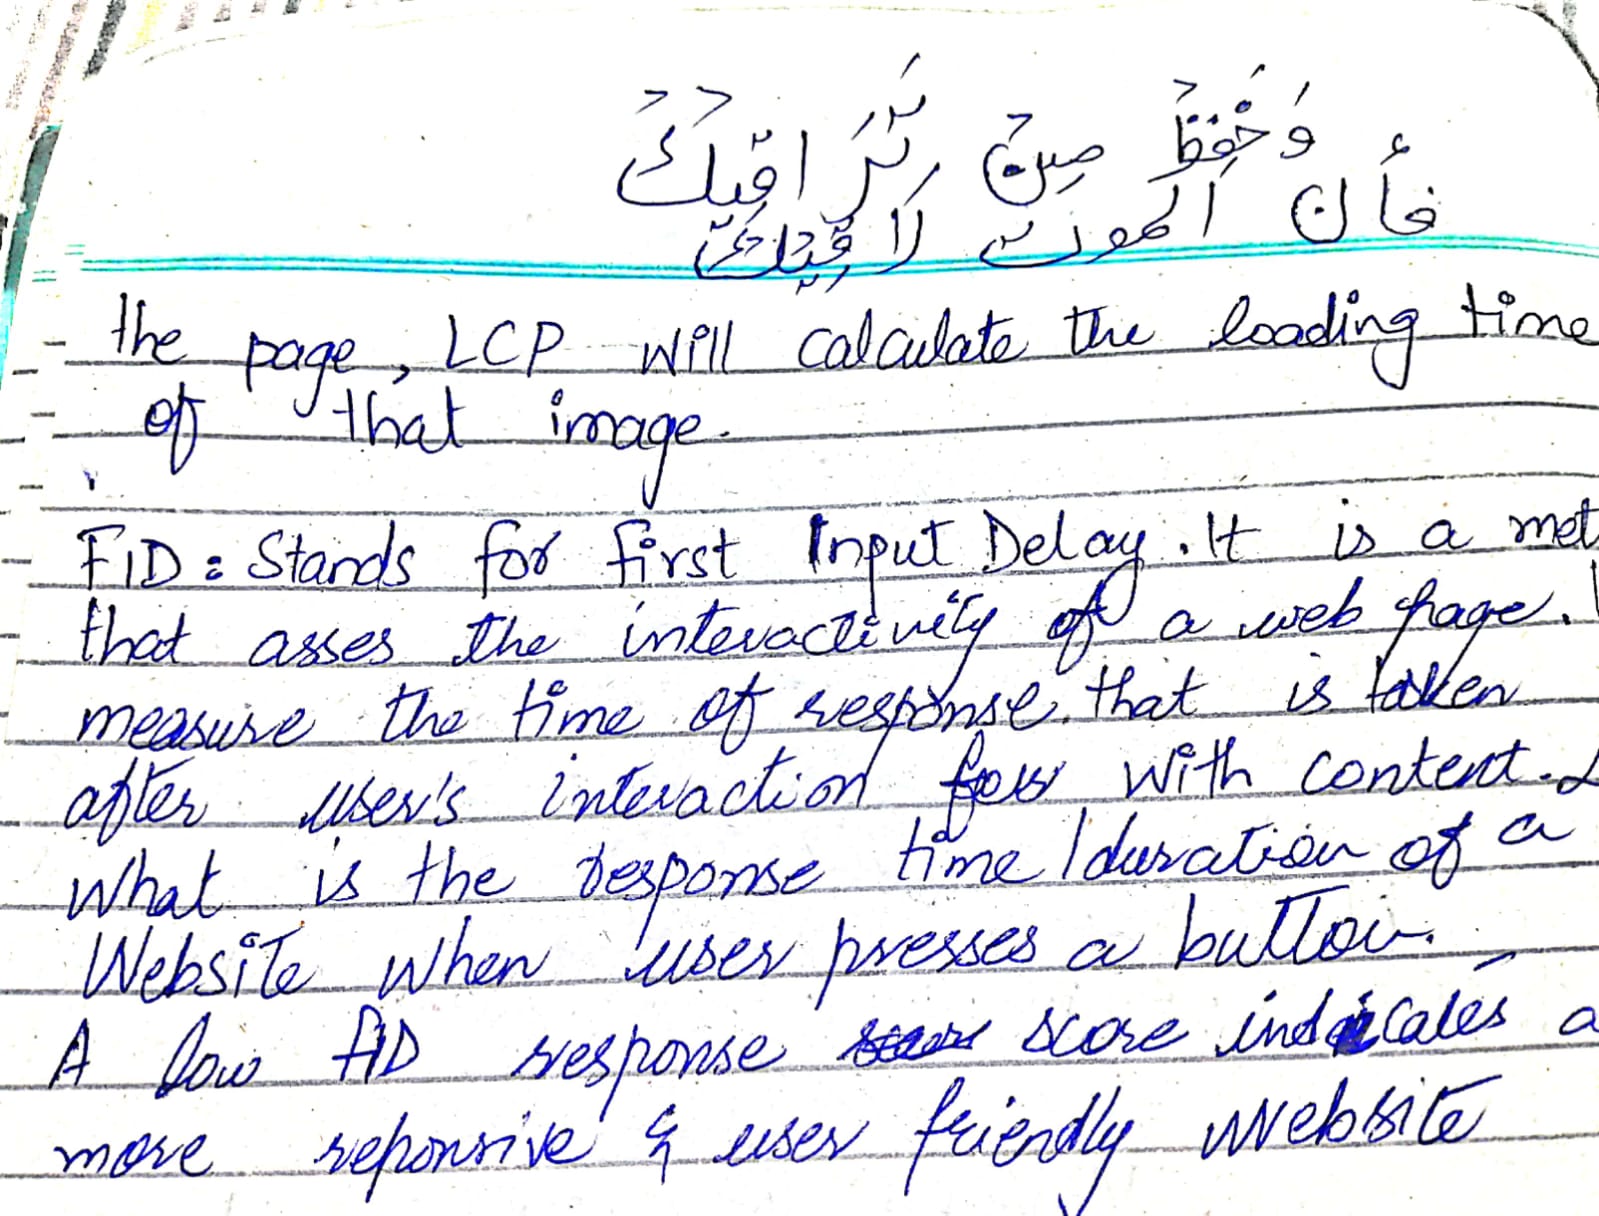 فأن الموت لا
the page, LCP will calculate the loading time
of that image.
FID: Stands for first Input Delay. It is a met
that asses the interactivity of a web page.
measure the time of response that is taken
after user's interaction with content.
What is the response time/duration of a
Website when user presses a button.
A low FID response score indicates a
more reponsive & user friendly website